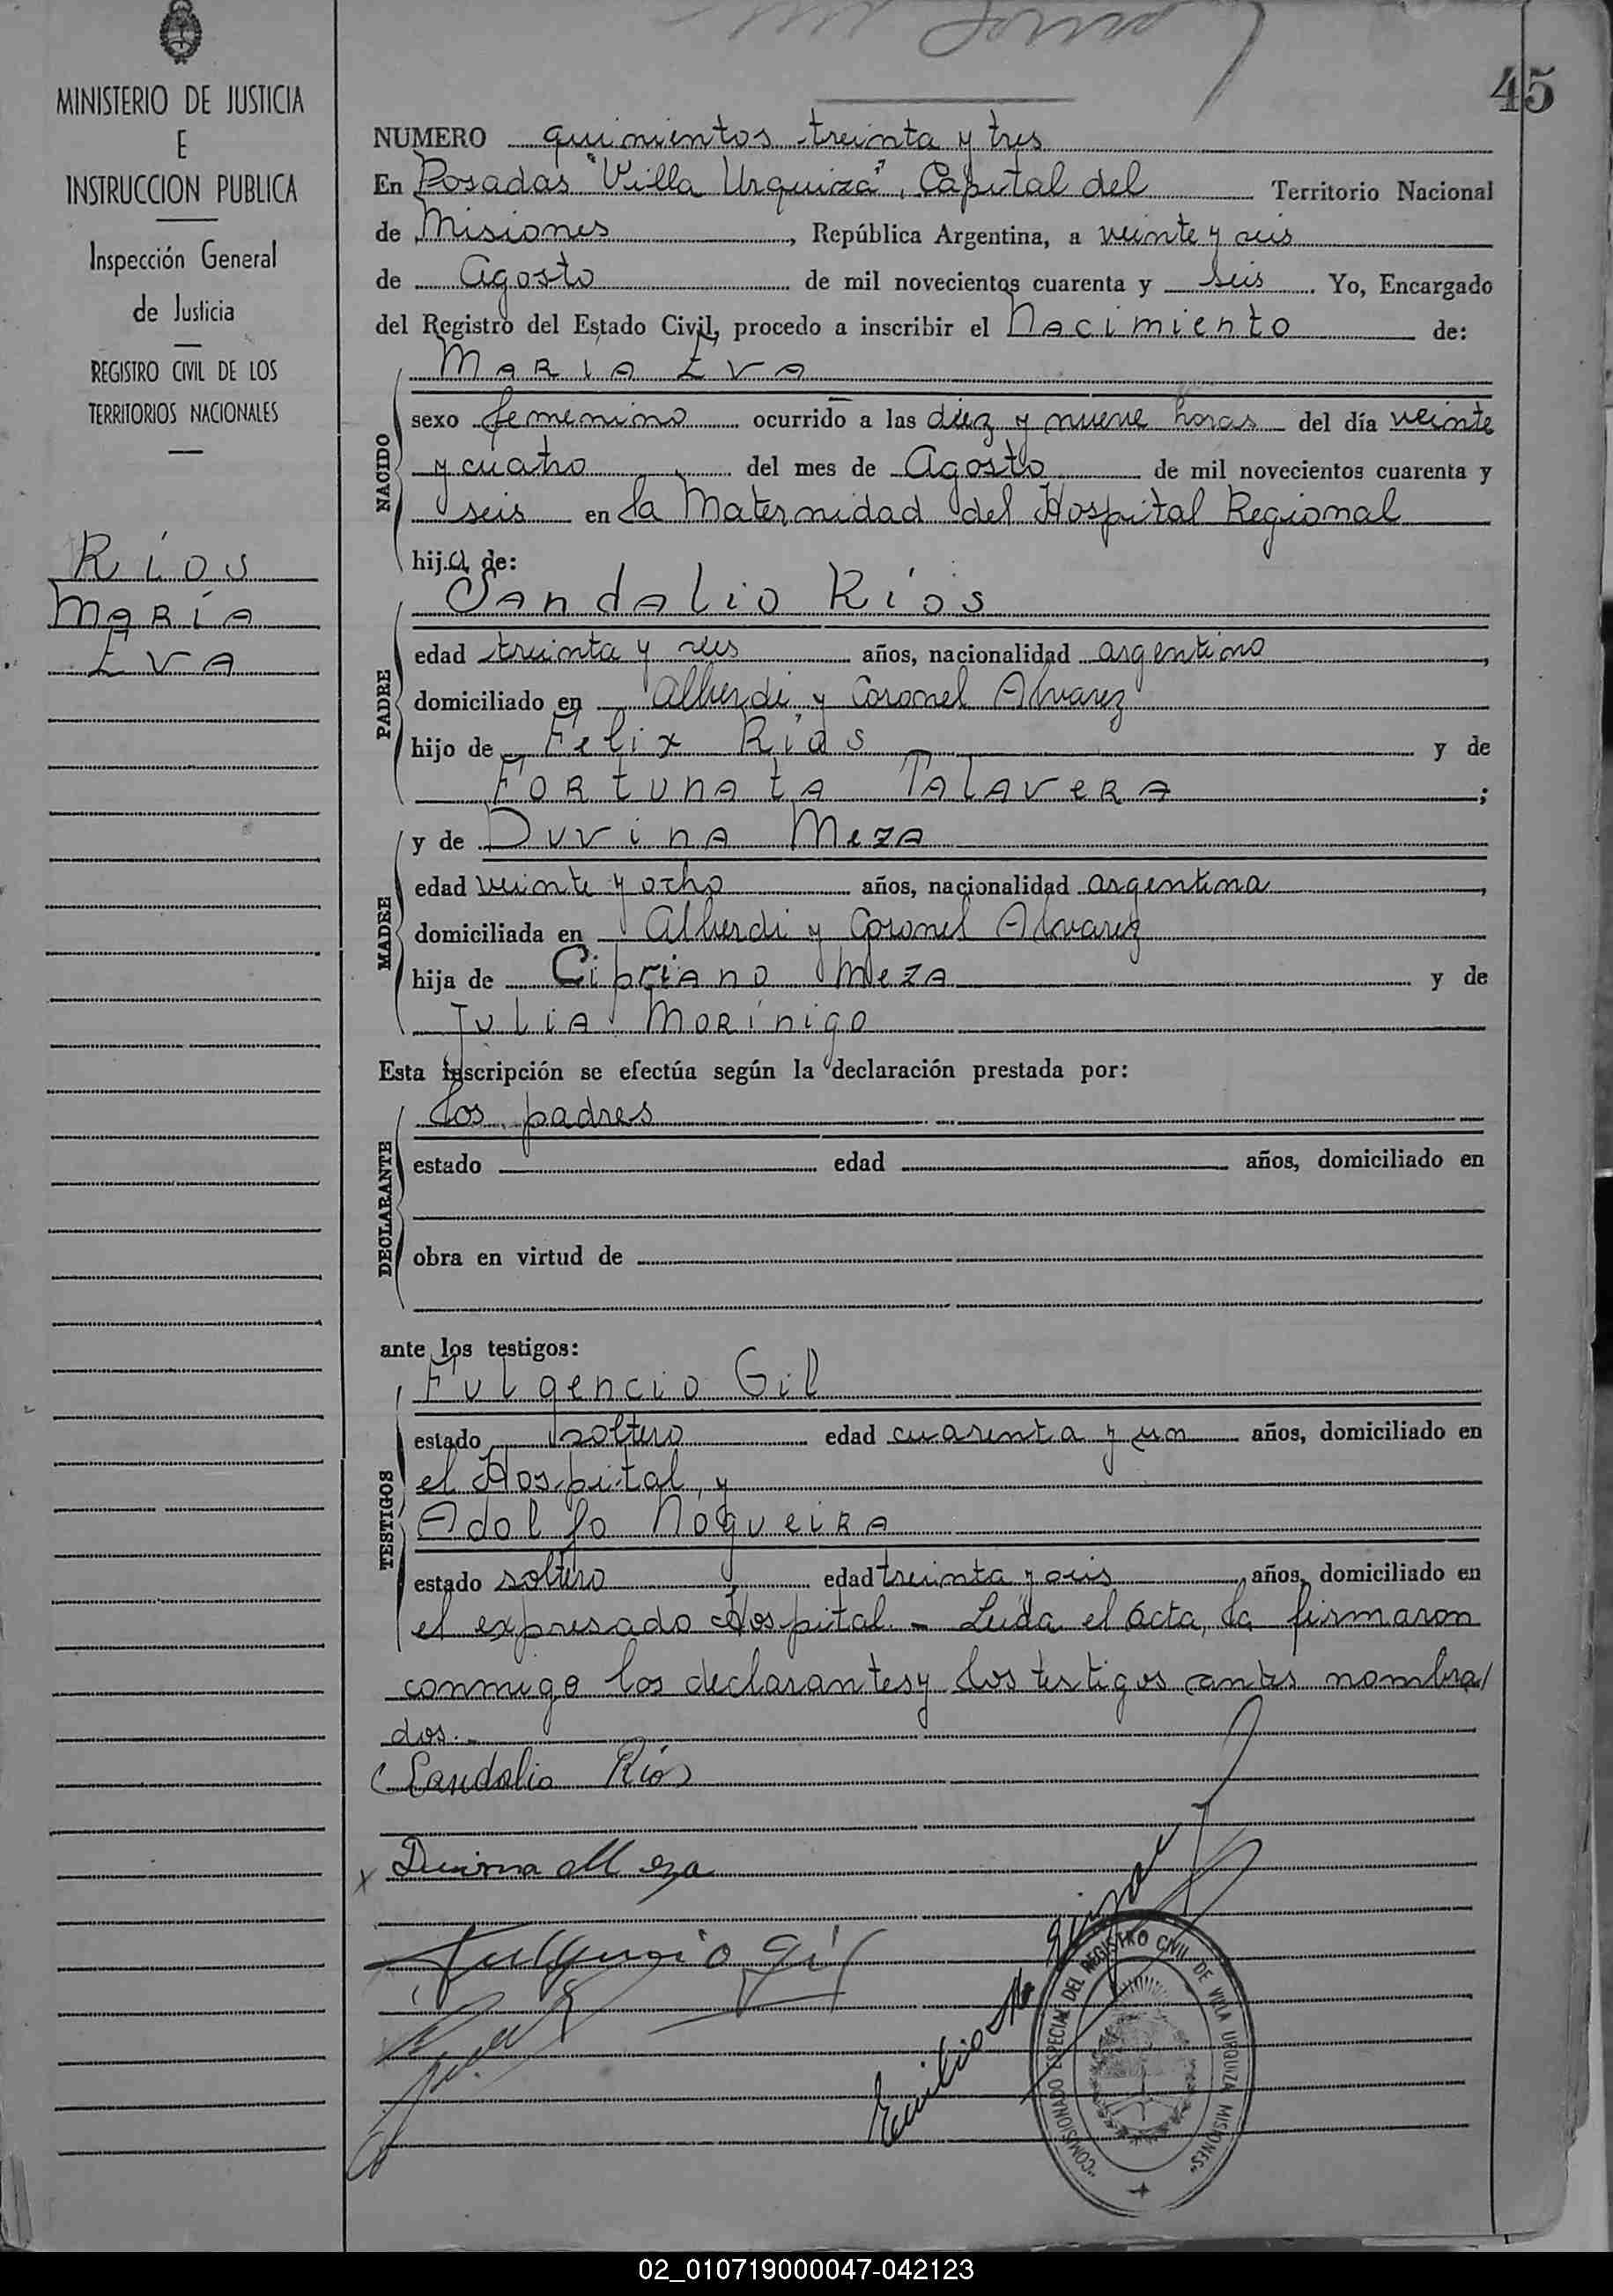 45
MINISTERIO DE JUSTICIA
E
INSTRUCCION PUBLICA
Inspección General
de Justicia
REGISTRO CIVIL DE LOS
TERRITORIOS NACIONALES
Ríos
María
Eva
NUMERO quinientos treinta y tres
En Posadas "Villa Urquiza", Capital del Territorio Nacional
de Misiones, República Argentina, a veinte y seis
de Agosto de mil novecientos cuarenta y seis. Yo, Encargado
del Registro del Estado Civil, procedo a inscribir el Nacimiento de:
NACIDO
MARIA EVA
sexo femenino ocurrido a las diez y nueve horas del día veinte
y cuatro del mes de Agosto de mil novecientos cuarenta y
seis en la Maternidad del Hospital Regional
hija de:
PADRE
Sandalio Ríos
edad treinta y seis años, nacionalidad argentino,
domiciliado en Alberdi y Coronel Alvarez
hijo de Felix Ríos y de
Fortunata Talavera;
MADRE
y de Duvina Meza
edad veinte y ocho años, nacionalidad argentina,
domiciliada en Alberdi y Coronel Alvarez
hija de Cipriano Meza y de
Julia Morínigo
Esta inscripción se efectúa según la declaración prestada por:
DECLARANTE
los padres
estado edad años, domiciliado en
obra en virtud de
ante los testigos:
TESTIGOS
Fulgencio Gil
estado soltero edad cuarenta y un años, domiciliado en
el Hospital, y
Adolfo Nogueira
estado soltero edad treinta y seis años, domiciliado en
el expresado Hospital.- Leida el acta, la firmaron
conmigo los declarantes y los testigos antes nombra/
dos.-
Sandalio Ríos
x Duvina Meza
Fulgencio Gil
Emilio
"COMISIONADO ESPECIAL DEL REGISTRO CIVIL DE VILLA URQUIZA MISIONES"
02_010719000047-042123